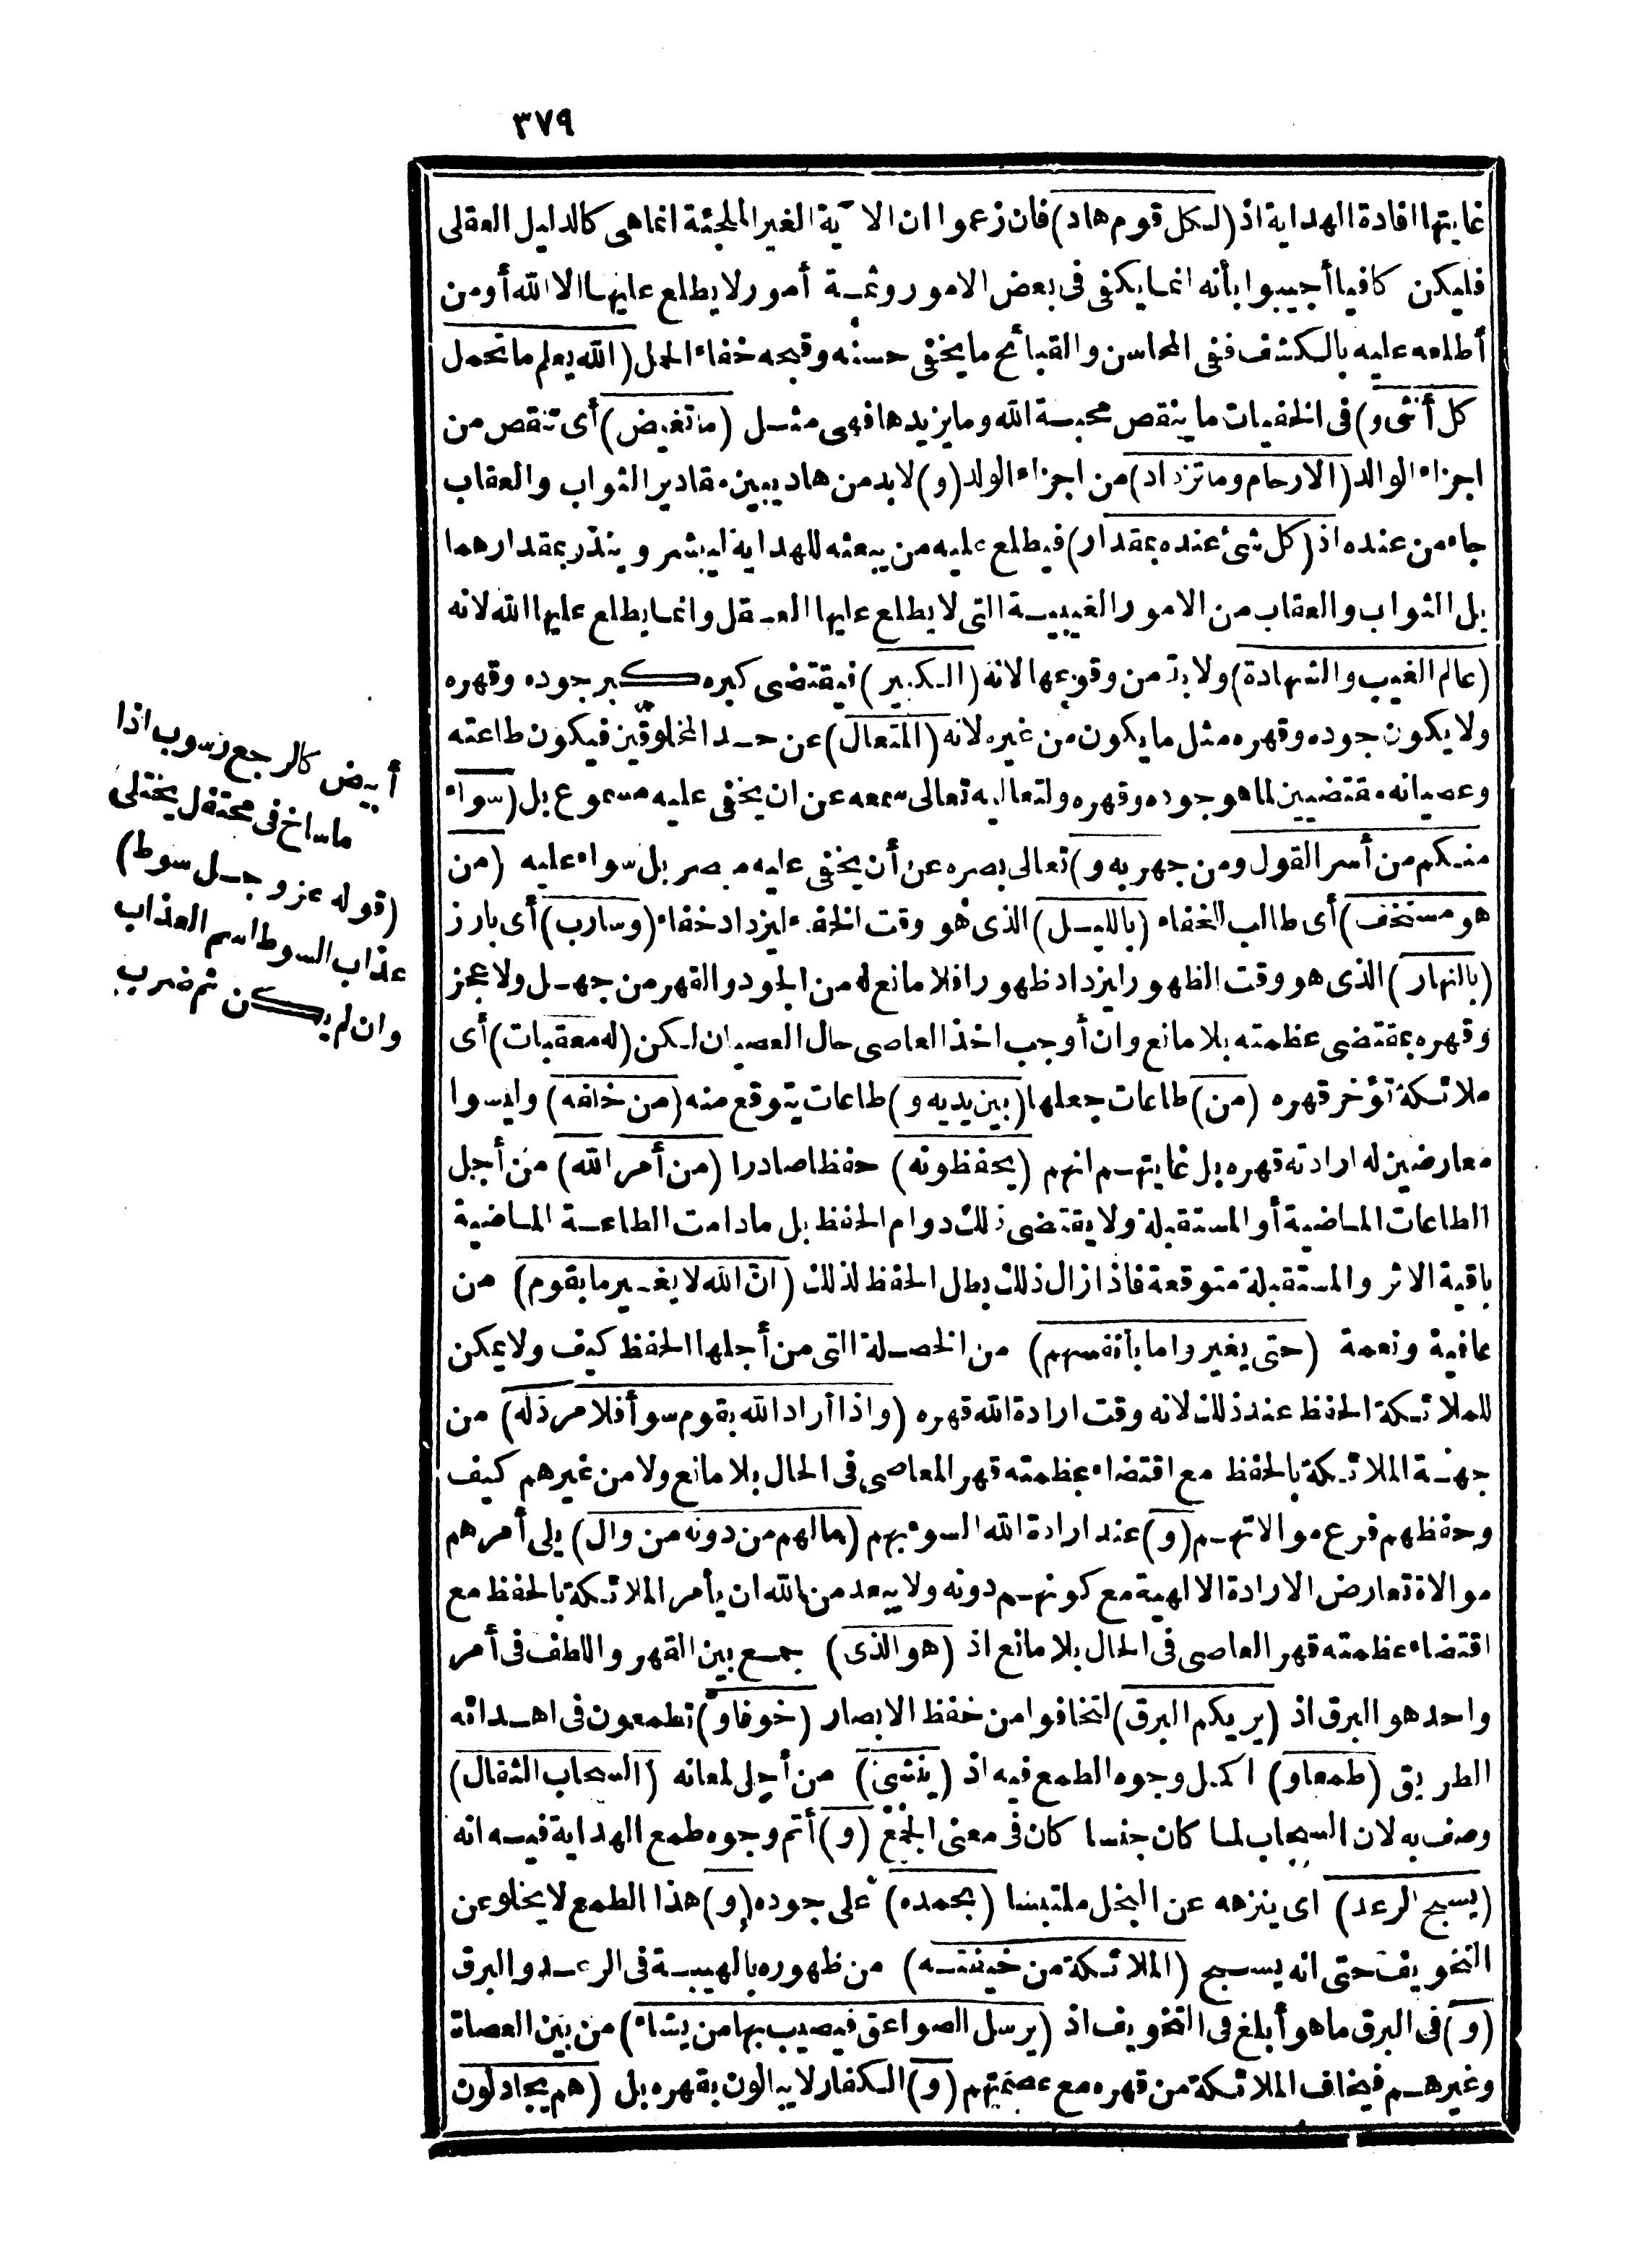 ٣٧٩
غايتها افادة الهداية اذ (لكل قوم هاد) فان زعموا ان الآية الغير الملجئة انما هى كالدليل العقلى
فليكن كافيا أجيبوا بأنه انما يكفى فى بعض الامور وثمة أمور لا يطلع عليها الا الله أو من
أطلعه عليه بالكشف ففى المحاسن والقبائح ما يخفى حسنه وقبحه خفاء الحمل (الله يعلم ما تحمل
كل أنثى و) فى الخفيات ما ينقص محبة الله وما يزيدها فهى مثل (ما تغيض) أى تنقص من
اجزاء الوالد (الارحام وما تزداد) من اجزاء الولد (و) لابد من هاد يبين مقادير الثواب والعقاب
جاء من عنده اذ (كل شئ عنده بمقدار) فيطلع عليه من يبعثه للهداية ليبشر وينذر بمقدارهما
بل الثواب والعقاب من الامور الغيبية التى لا يطلع عليها العقل وانما يطلع عليها الله لانه
(عالم الغيب والشهادة) ولا بد من وقوعها لانه (الكبير) فيقتضى كبره كبر جوده وقهره
ولا يكون جوده وقهره مثل ما يكون من غيره لانه (المتعال) عن حد المخلوقين فيكون طاعته
وعصيانه مقتضيين لما هو جوده وقهره ولتعاليه تعالى سمعه عن ان يخفى عليه مسموع بل (سواء
منكم من أسر القول ومن جهر به و) تعالى بصره عن أن يخفى عليه مبصر بل سواء عليه (من
هو مستخف) أى طالب الخفاء (بالليل) الذى هو وقت الخفاء ليزداد خفاء (وسارب) أى بارز
(بالنهار) الذى هو وقت الظهور ليزداد ظهورا فلا مانع له من الجود والقهر من جهل ولا عجز
وقهره بمقتضى عظمته بلا مانع وان أوجب اخذ العاصى حال العصيان لكن (له معقبات) أى
ملائكة تؤخر قهره (من) طاعات جعلها (بين يديه و) طاعات يتوقع منه (من خلفه) وليسوا
معارضين له ارادته قهره بل غايتهم انهم (يحفظونه) حفظا صادرا (من أمر الله) من أجل
الطاعات الماضية أو المستقبلة ولا يقتضى ذلك دوام الحفظ بل مادامت الطاعة الماضية
باقية الاثر والمستقبلة متوقعة فاذا زال ذلك بطل الحفظ لذلك (ان الله لا يغير ما بقوم) من
عافية ونعمة (حتى يغيروا ما بأنفسهم) من الخصلة التى من أجلها الحفظ كيف ولا يمكن
للملائكة الحفظ عند ذلك لانه وقت ارادة الله قهره (واذا أراد الله بقوم سوأ فلا مردله) من
جهة الملائكة بالحفظ مع اقتضاء عظمته قهر المعاصى فى الحال بلا مانع ولا من غيرهم كيف
وحفظهم فرع موالاتهم (و) عند ارادة الله السوء بهم (مالهم من دونه من وال) يلى أمرهم
موالاة تعارض الارادة الالهية مع كونهم دونه ولا يبعد من الله ان يأمر الملائكة بالحفظ مع
اقتضاء عظمته قهر العاصى فى الحال بلا مانع اذ (هو الذى) يجمع بين القهر واللطف فى أمر
واحد هو البرق اذ (يريكم البرق) لتخافوا من خفظ الابصار (خوفا و) تطمعون فى اهدائه
الطريق (طمعا و) اكمل وجوه الطمع فيه اذ (ينشئ) من أجل لمعانه (السحاب الثقال)
وصف به لان السحاب لما كان جنسا كان فى معنى الجمع (و) أتم وجوه طمع الهداية فيه انه
(يسبح الرعد) اى ينزهه عن البخل ملتبسا (بحمده) على جوده (و) هذا الطمع لا يخلو عن
التخويف حتى انه يسبح (الملائكة من خيفته) من ظهوره بالهيبة فى الرعد والبرق
(و) فى البرق ما هو أبلغ فى التخويف اذ (يرسل الصواعق فيصيب بها من يشاء) من بين العصاة
وغيرهم فيخاف الملائكة من قهره مع عصمتهم (و) الكفار لا يبالون بقهره بل (هم يجادلون
أبيض كالرجع رسوب اذا
ما ساخ فى محتفل يختلى
(قوله عز وجل سوط)
عذاب السوط اسم العذاب
وان لم يكن ثم ضرب